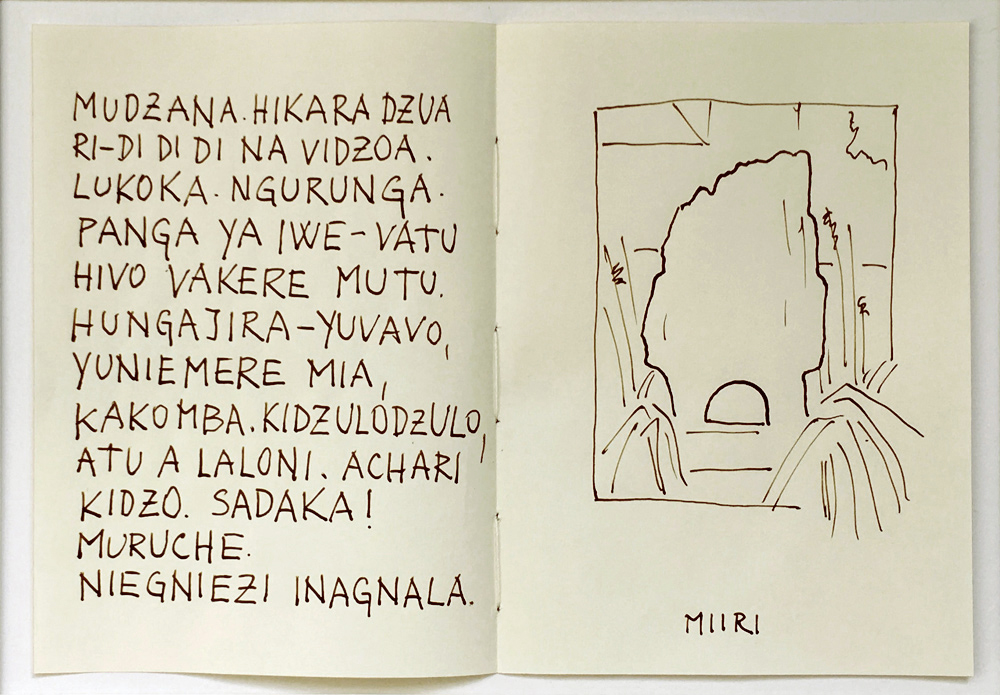 MUDZANA. HIKARA DZUA
RI-DI DI DI NA VIDZOA.
LUKOKA. NGURUNGA.
PANGA YA IWE-VATU
HIVO VAKERE MUTU.
HUNGAJIRA-YUVAVO,
YUNIEMERE MIA,
KAKOMBA. KIDZULÓDZULO,
ATU A LALONI. ACHARI
KIDZO. SADAKA!
MURUCHE.
NIEGNIEZI INAGNALA.
MIIRI